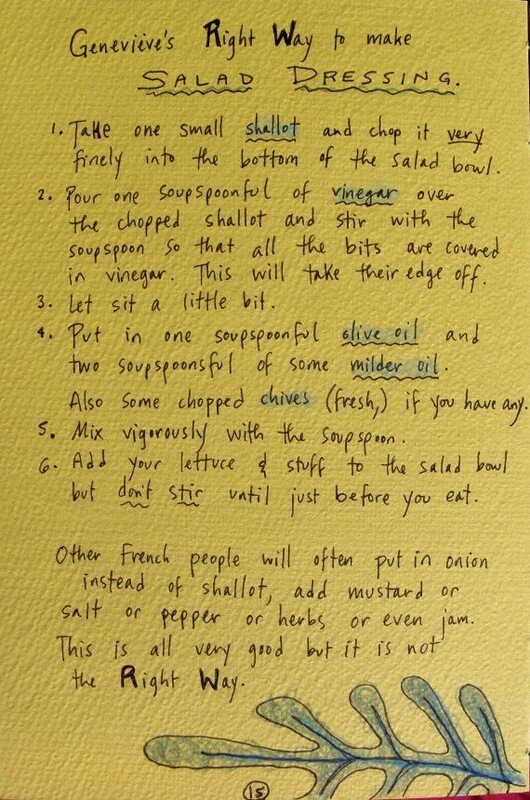 Geneviève's Right Way to make
SALAD DRESSING.
1. Take one small shallot and chop it very
finely into the bottom of the salad bowl.
2. Pour one soupspoonful of vinegar over
the chopped shallot and stir with the
soupspoon so that all the bits are covered
in vinegar. This will take their edge off.
3. Let sit a little bit.
4. Put in one soupspoonful olive oil and
two soupspoonsful of some milder oil.
Also some chopped chives (fresh,) if you have any.
5. Mix vigorously with the soupspoon.
6. Add your lettuce & stuff to the salad bowl
but don't stir until just before you eat.
Other French people will often put in onion
instead of shallot, add mustard or
salt or pepper or herbs or even jam.
This is all very good but it is not
the Right Way.
15